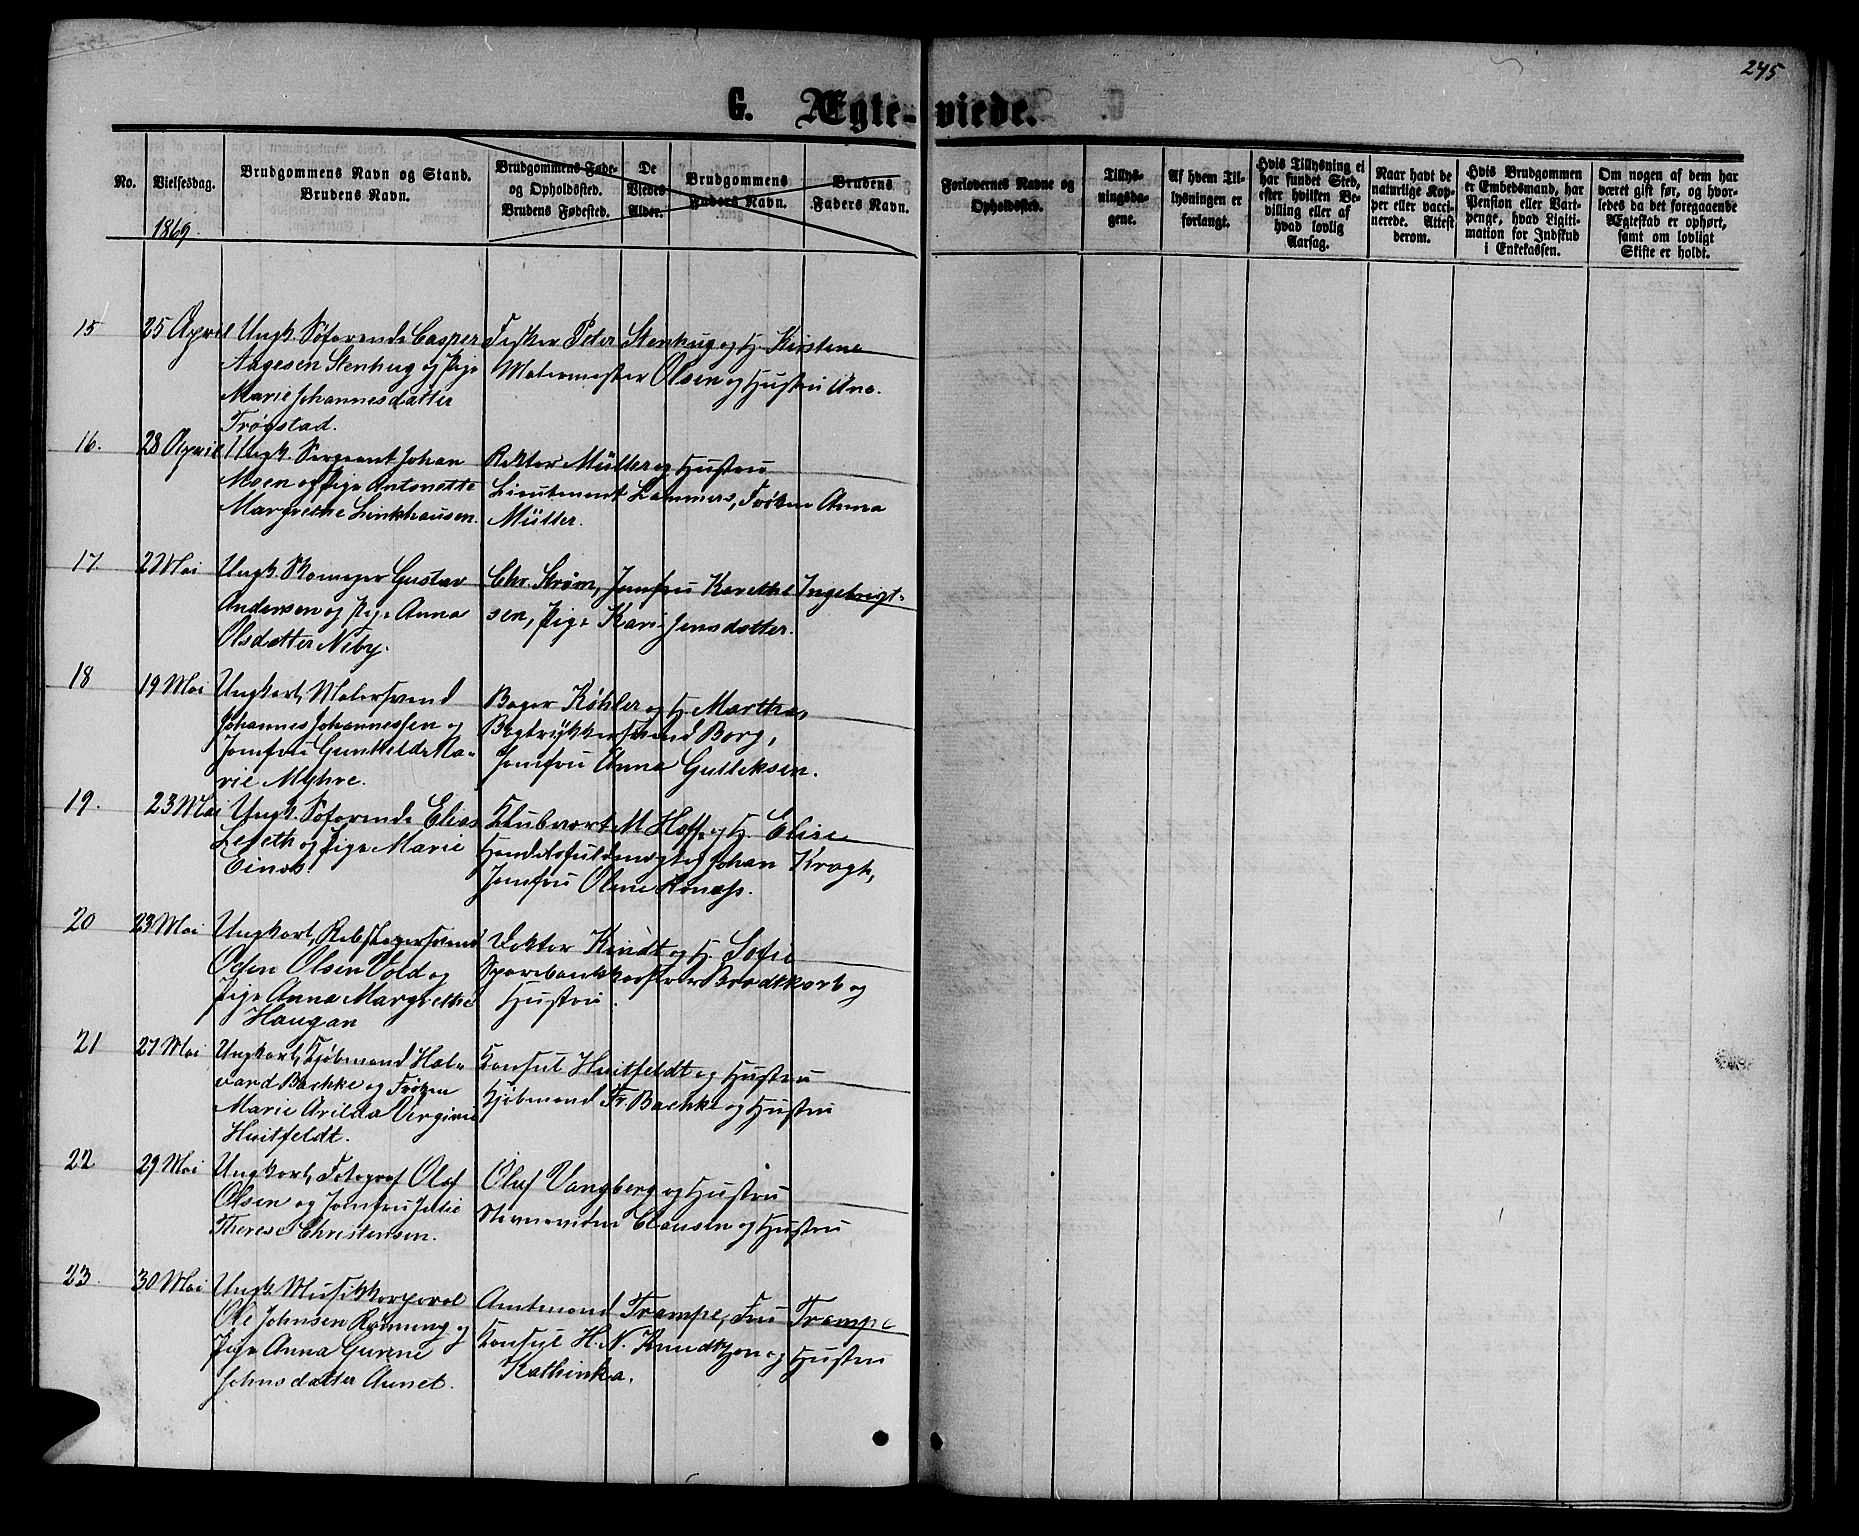 245
G. Ægte-viede.
No.
Vielsesdag.
Brudgommens Navn og Stand.
Brudens Navn.
Brudgommens Føde-
og Opholdssted.
Brudens Fødested.
De
Viedes
Alder.
Brudgommens
Faders Navn.
Brudens
Faders Navn.
Forlovernes Navne og
Opholdssted.
Tillys-
ningsda-
gene.
Af hvem Til-
lysningen er
forlangt.
Hvis Tillysning ei
har fundet Sted,
efter hvilken Be-
villing eller af
hvad lovlig
Aarsag.
Naar havt de
naturlige Kop-
per eller vacci-
nerede. Attest
derom.
Hvis Brudgommen
er Embedsmand, har
Pension eller Vart-
penge, hvad Ligiti-
mation for Indskud
i Enkekassen.
Om nogen af dem har
været gift før, og hvor-
ledes da det foregaaende
Ægteskab er ophørt,
samt om lovligt
Skifte er holdt.
1869.
15 25 April Ungk. Søfarende Casper
Aagesen Stenhug og Pige
Marie Johannesdatter
Trøgstad.
Fisker Peter Stenhug og H. Kirstene
Malermester Olsen og Hustru Ane.
16. 28 April Ungk. Sergeant Johan
Moen og Pige Antonette
Margrethe Linkhausen.
Rektor Müller og Hustru
Lieutenant Lammers, Frøken Anna
Müller.
17 2 Mai Ungk. Skomager Gustav
Andersen og Pige Anna
Olsdatter Neby.
Chr. Strøm, Jomfru Karethe Ingebrigt-
sen, Pige Kari Jensdatter.
18 19 Mai Ungkarl, Malersvend
Johannes Johannessen og
Jomfru Gunhilde Ma-
rie Myhre.
Bager Køhler og H. Martha,
Bogtrykkersvend Borg,
Jomfru Anna Gulliksen.
19. 23 Mai Ungk. Søfarende Elias
Leseth og Pige Marie
Einos
Klubvært M Hoff og H. Elise
Handelsfuldmægtig Johan Krogh,
Jomfru Oline Ronæss.
20 23 Mai Ungkarl, Rebslagersvend
Olsen Vold og
Pige Anna Margrethe
Haugan
Doktor Kindt og H. Sofie
Sparebankkasserer Brodtkorb og
Hustru.
21 27 Mai Ungkarl, Kjøbmand Hal-
vard Bachke og Frøken
Marie Arilda Verginie
Huitfeldt.
Konsul Huitfeldt og Hustru
Kjøbmand Fr. Bachke og Hustru
22 29 Mai Ungkarl, Fotograf Olaf
Olsen og Jomfru Julie
Therese Christensen.
Olaf Vangberg og Hustru
Stevnevidne Clausen og Hustru
23. 30 Mai Ungk. Musikkorporal
Ole Johnsen Rønning og
Pige Anna Gurine
Johnsdatter Aunet.
Amtmand Trampe, Fru Trampe
Konsul H. N. Knudtzon og Hustru
Kathinka.